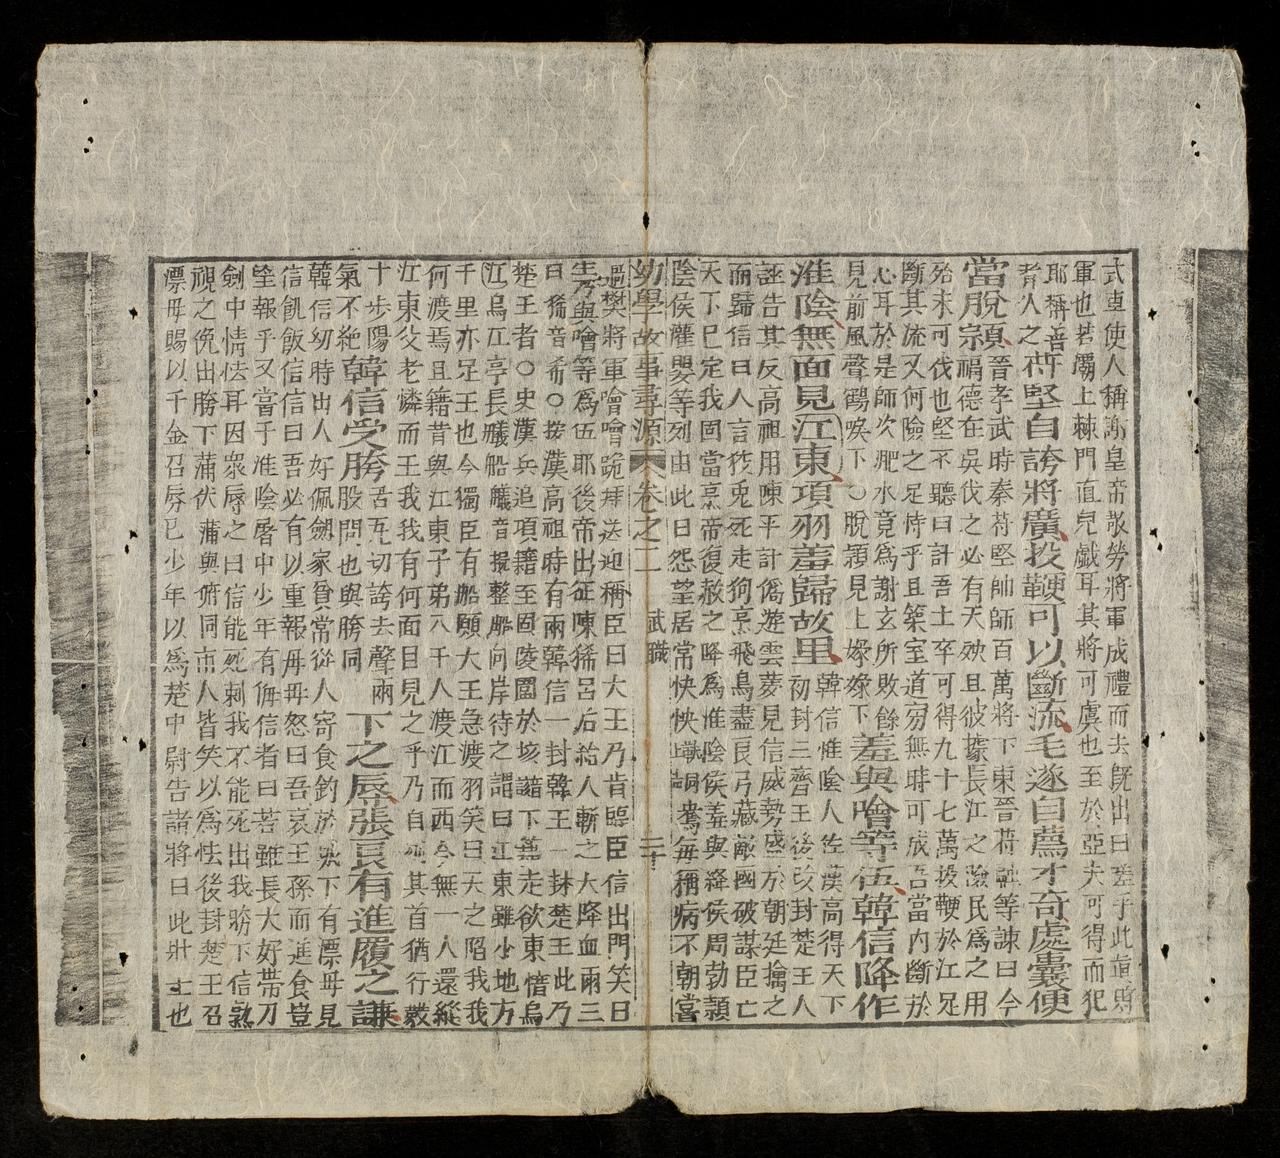 式車使人稱謝皇帝敬勞將軍成禮而去旣出曰嗟乎此眞將
軍也若灞上棘門直兒戲耳其將可虜也至於亞夫可得而犯
耶稱善
者久之苻堅自誇將廣投鞭可以斷流毛遂自薦才奇處囊便
當脫穎晉孝武時秦苻堅帥師百萬將下東晉苻融等諫曰今
福德在吳伐之必有天殃且彼據長江之險民爲之用
殆未可伐也堅不聽曰計吾士卒可得九十七萬投鞭於江足
斷其流又何險之足恃乎且築室道旁無時可成吾當內斷於
心耳於是師次淝水竟爲謝玄所敗餘
見前風聲鶴唳下○脫穎見上嫁嫁下羞與噲等伍韓信降作
淮陰無面見江東項羽羞歸故里韓信淮陰人佐漢高得天下
初封三齊王後改封楚王人
誣告其反高祖用陳平計僞遊雲夢見信威勢盛於朝廷擒之
而歸信曰人言狡兎死走狗烹飛鳥盡良弓藏敵國破謀臣亡
天下已定我固當烹帝復赦之降爲淮陰侯羞與絳侯周勃潁
陰侯灌嬰等列由此日怨望居常怏怏
每稱病不朝嘗
幼學故事尋源 卷之二 武職 二十
過樊將軍噲噲跪拜送迎稱臣曰大王乃肯臨臣信出門笑曰
生乃與噲等爲伍耶後帝出征陳豨呂后紿人斬之大降血雨三
日豨音希○按漢高祖時有兩韓信一封韓王一封楚王此乃
楚王者○史漢兵追項籍至固陵圍於垓譏下羽走欲東憯烏
江烏江亭長艤船艤音擬整船向岸待之謂曰江東雖小地方
千里亦足王也今獨臣有船願大王急渡羽笑曰天之陷我我
何渡焉且籍昔與江東子弟八千人渡江而西今無一人還縱
江東父老憐而王我我有何面目見之乎乃自刎其首猶行數
十步陽
氣不絕韓信受胯股問也與胯同
苦瓦切誇去聲兩下之辱張良有進履之謙
韓信幼時出人好佩劍家貧常從人寄食釣於城下有漂母見
信飢飯信信曰吾必有以重報母母怒曰吾哀王孫而進食豈
望報乎又嘗于淮陰屠中少年有侮信者曰若雖長大好帶刀
劍中情怯耳因衆辱之曰信能死刺我不能死出我胯下信熟
視之俛出胯下蒲伏蒲與匍同市人皆笑以爲怯後封楚王召
漂母賜以千金召辱己少年以爲楚中尉告諸將曰此壯士也